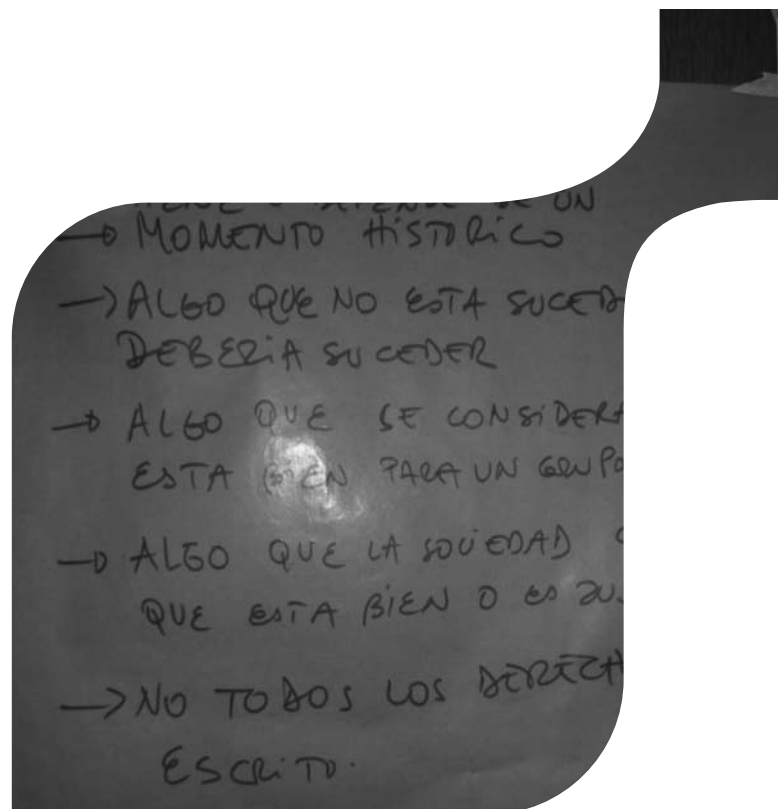 UN
→ MOMENTO HISTORICO
→ ALGO QUE NO ESTA SUCED
DEBERIA SUCEDER
→ ALGO QUE SE CONSIDERA
ESTA BIEN PARA UN GRUPO
→ ALGO QUE LA SOCIEDAD
QUE ESTA BIEN O ES JUS
→ NO TODOS LOS DERECH
ESCRITO.